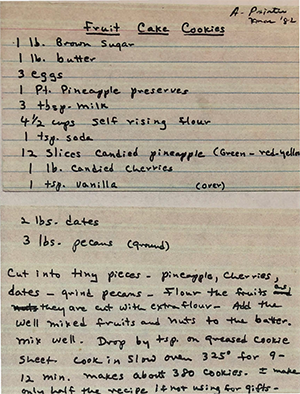 A. Painter
Xmas '82
Fruit Cake Cookies
1 lb. Brown Sugar
1 lb. butter
3 eggs
1 Pt. Pineapple preserves
3 tbsp. milk
4 1/2 cups self rising flour
1 tsp. soda
12 slices candied pineapple (Green-red-yellow
1 lb. candied cherries
1 tsp. vanilla (over)
2 lbs. dates
3 lbs. pecans (ground)
Cut into tiny pieces - pineapple, cherries,
dates - grind pecans - Flour the fruits as
they are cut with extra flour - Add the
well mixed fruits and nuts to the batter.
mix well. Drop by tsp. on greased cookie
sheet. Cook in slow oven 325° for 9-
12 min. makes about 380 cookies. I make
only half the recipe if not using for gifts -